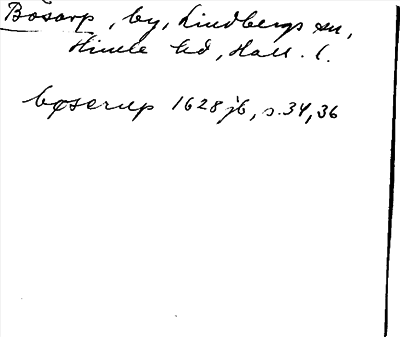 Bösarp, by, Lindbergs sn,
Himle hd, Hall. l.
bøserup 1628 jb, s. 34, 36